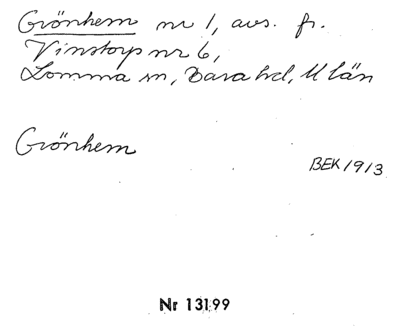 Grönhem nr 1, avs. fr.
Vinstorp nr 6,
Lomma sn, Bara hd, M län
Grönhem
BEK 1913
Nr 13199